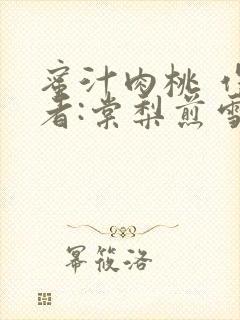 蜜汁肉桃 作
者:棠梨煎雪
幂筱洛